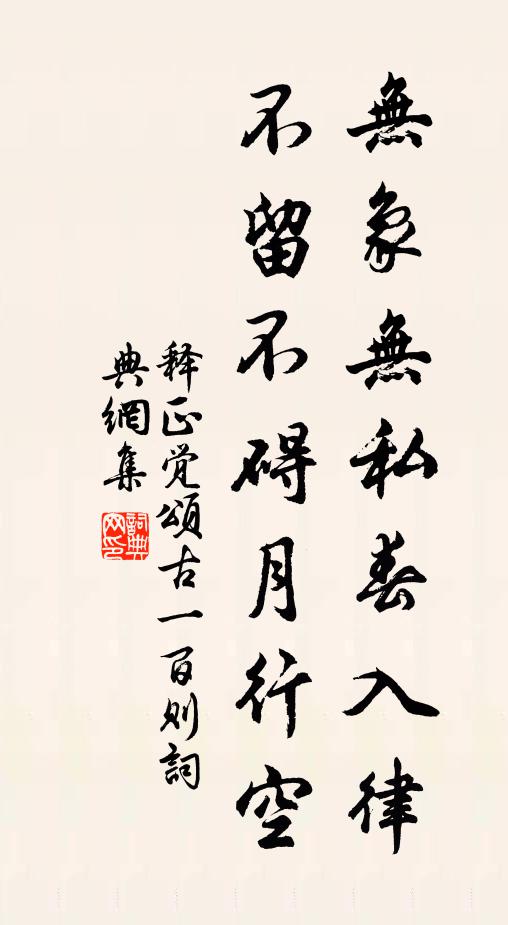 無象無私春入律
不留不碍月行空
释正覚頌古一百则詞
典網集
詞典
网印